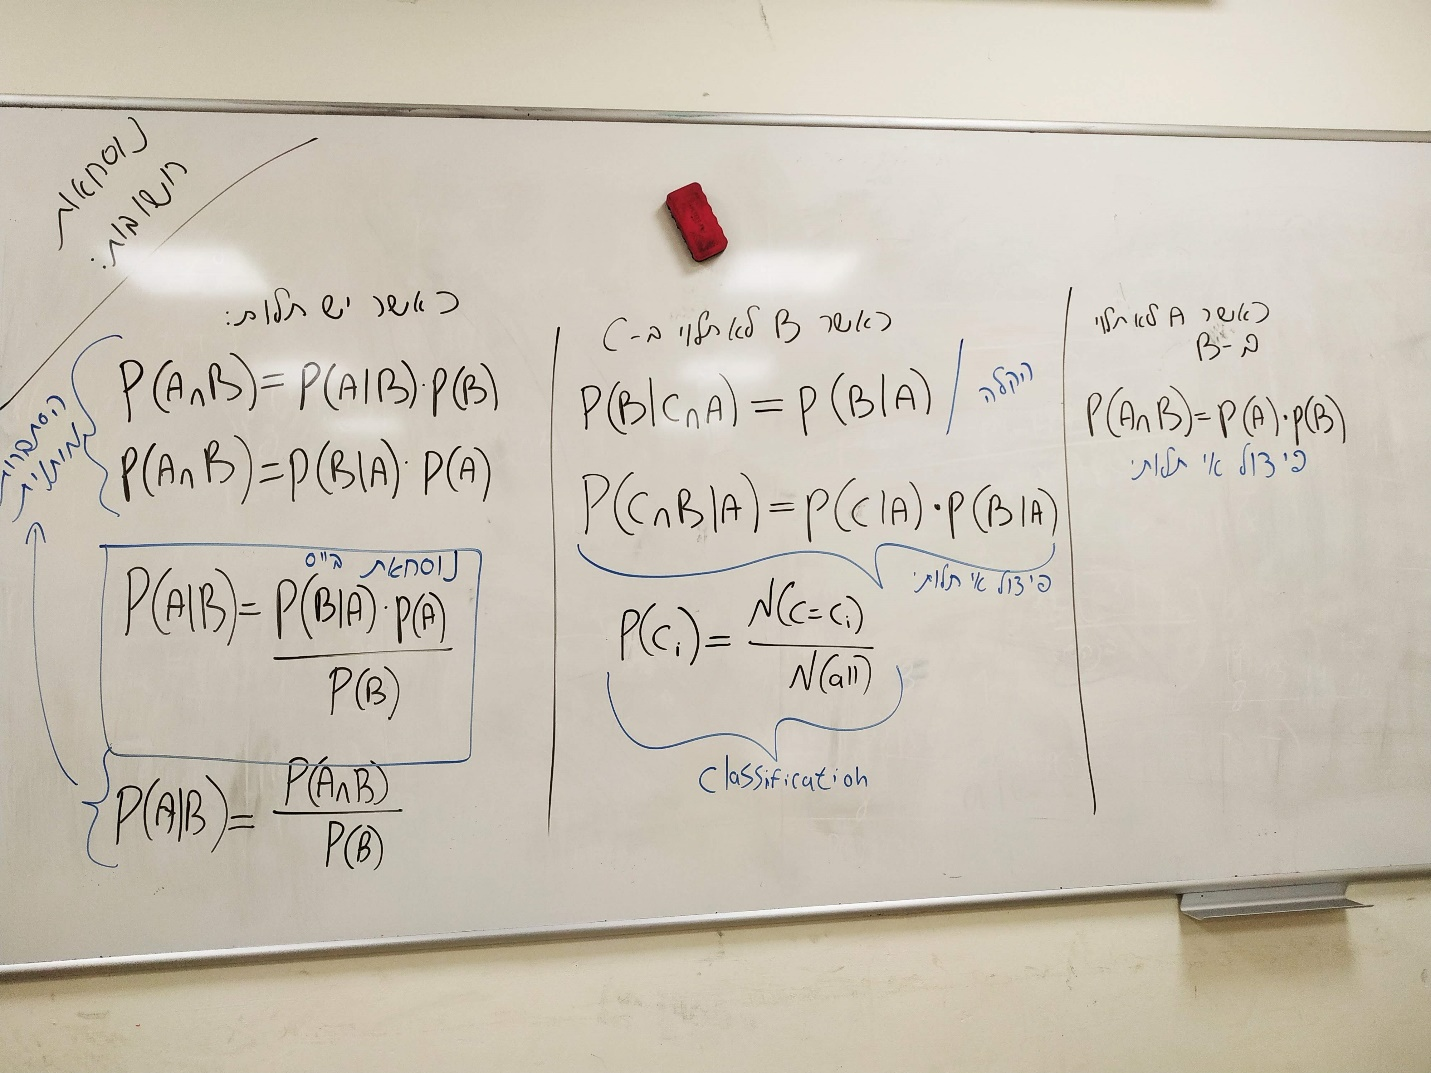 נוסחאות
חשובות:
כאשר יש תלות:
P(A∩B)=P(A|B)·P(B)
P(A∩B)=P(B|A)·P(A)
הסתברות
מותנית
נוסחאת בייס
P(A|B)=P(B|A)·P(A)
P(B)
P(A|B)=P(A∩B)
P(B)
כאשר B לא תלוי ב-C
P(B|C∩A)=P(B|A)
הקלה
P(C∩B|A)=P(C|A)·P(B|A)
פיצול אי תלותי
P(Ci)=N(C=Ci)
N(all)
Classification
כאשר A לא תלוי
ב-B
P(A∩B)=P(A)·P(B)
פיצול אי תלותי